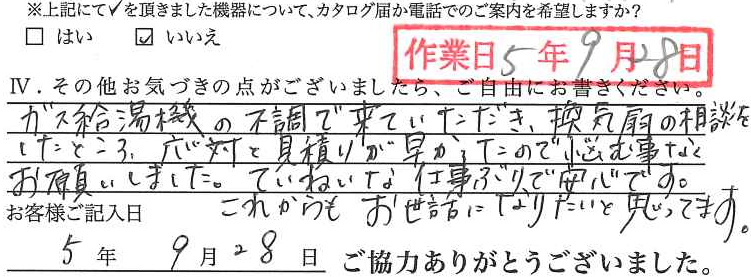 ※上記にて✓を頂きました機器について、カタログ届か電話でのご案内を希望しますか？
□ はい ☑ いいえ
作業日 5年 9月28日
Ⅳ．その他お気づきの点がございましたら、ご自由にお書きください。
ガス給湯機の不調で来ていただき、換気扇の相談を
したところ、応対と見積りが早かったので悩む事なく
お願いしました。ていねいな仕事ぶりで安心です。
これからも お世話になりたいと思ってます。
お客様ご記入日
5年 9月28日 ご協力ありがとうございました。